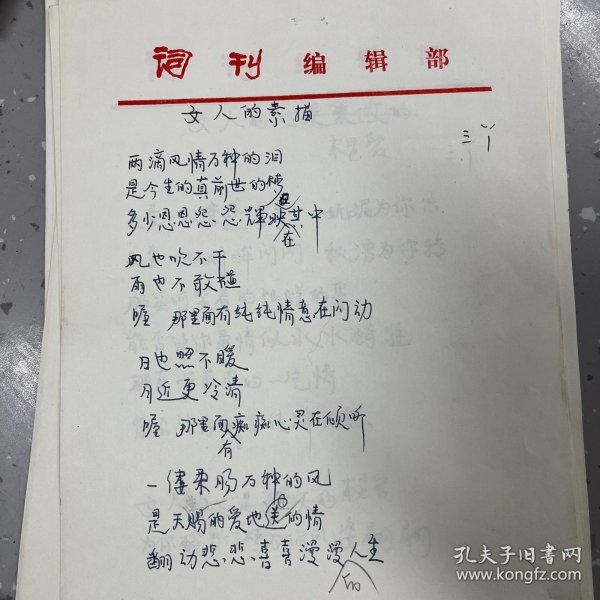 词刊 编辑部
女人的素描
三丫
两滴风情万种的泪
是今生的真前世的梦
多少恩恩怨怨辉映在其中
风也吹不干
雨也不敢碰
喔 那里面有纯纯情意在闪动
日也照不暖
月近更冷清
喔 那里面有痴痴心灵在倾听
一缕柔肠万种的风
是天赐的爱地送的情
翻动悲悲喜喜漫漫的人生
孔夫子旧书网
www.kongfz.com